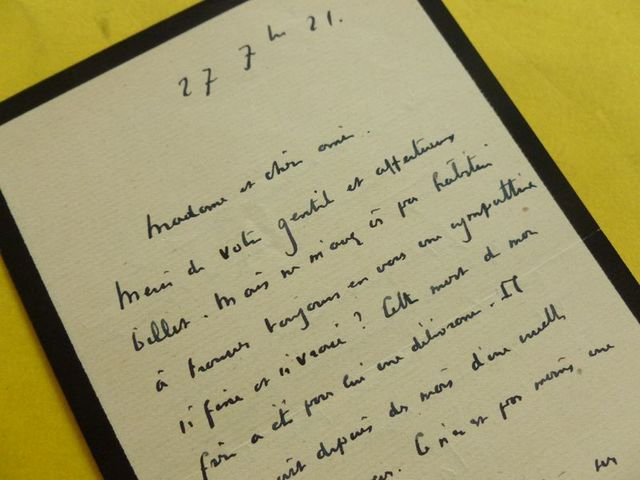 27 7bre 21.
Madame et chère amie.
Merci de votre gentil et affectueux
billet. Mais ne m'avez pas
à trouver toujours en vous une sympathie
si fine et si vraie ? Cette mort de mon
frère a été pour lui une délivrance. Il
depuis des mois d'une
C n'en est pas moins une
sur